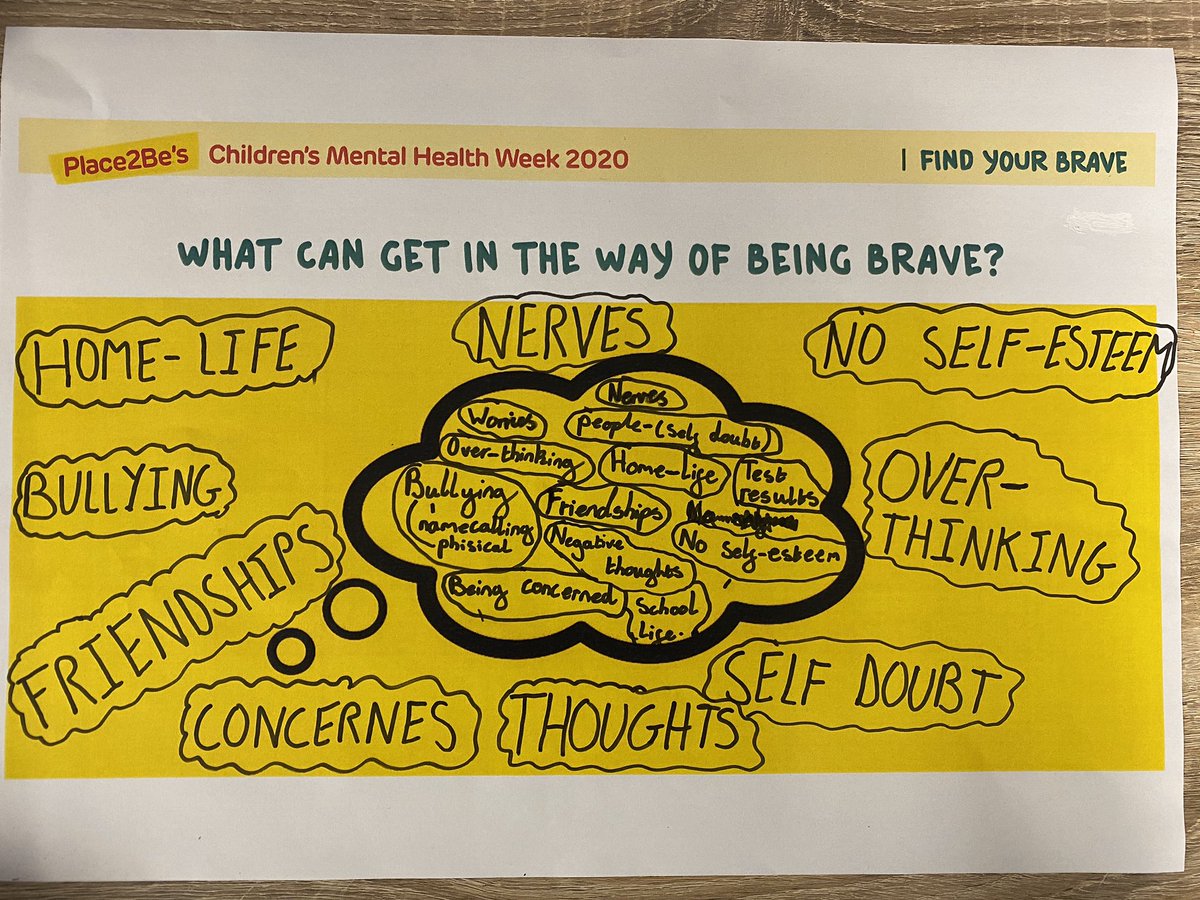 Place2Be's Children's Mental Health Week 2020 | FIND YOUR BRAVE
WHAT CAN GET IN THE WAY OF BEING BRAVE?
HOME-LIFE
NERVES
NO SELF-ESTEEM
BULLYING
OVER-
THINKING
FRIENDSHIPS
CONCERNES
THOUGHTS
SELF DOUBT
Nerves
Worries
people-(self doubt)
Over-thinking
Home-Life
Test
results
Bullying
namecalling
phisical
Friendships
No self-esteem
Negative
thoughts
Being concerned
School
Life.